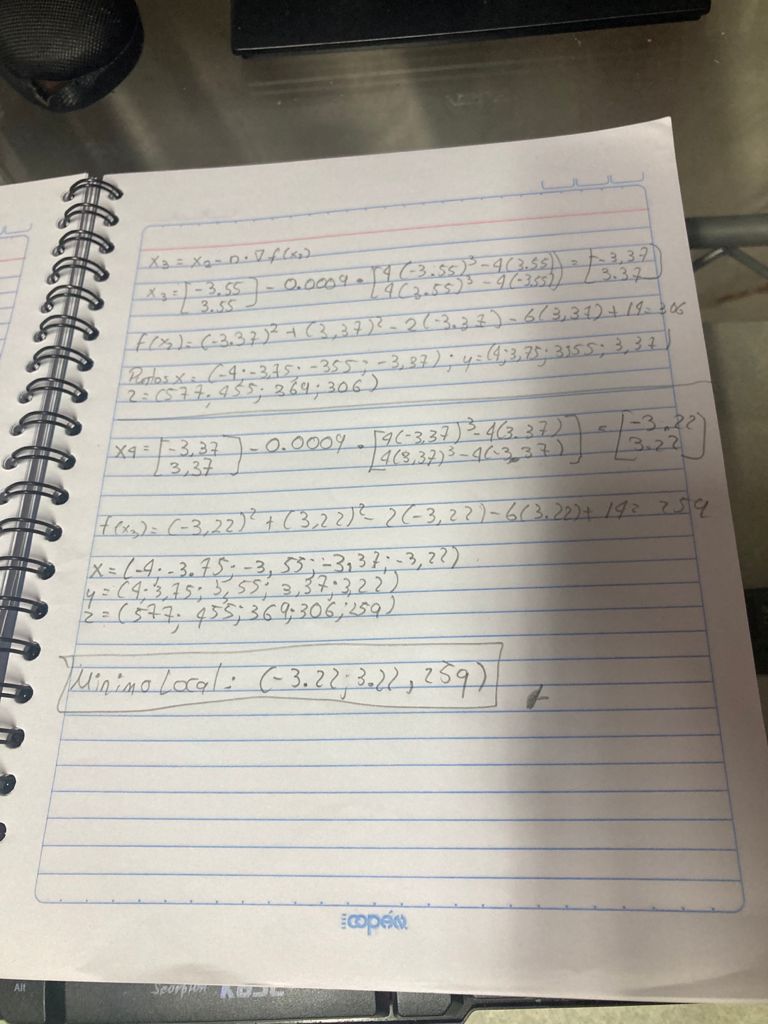 x₃ = x₂ - n · ∇f(x₂)
x₃ = [-3.55 3.55] - 0.0009 · [4(-3.55)³ - 4(3.55) 4(3.55)³ - 4(-3.55)] = [-3,37 3.37]
f(x₂) = (-3.37)² + (3,37)² - 2(-3.37) - 6(3,37) + 14 = 306
Puntos x = (-4; -3,75; -355; -3,37); y = (4; 3,75; 3,55; 3,37)
z = (577; 455; 369; 306)
x4 = [-3,37 3,37] - 0.0009 · [4(-3,37)³ - 4(3.37) 4(3,37)³ - 4(-3,37)] = [-3.22 3.22]
f(x₃) = (-3,22)² + (3,22)² - 2(-3,22) - 6(3.22) + 14 = 259
x = (-4; -3.75; -3,55; -3,37; -3,22)
y = (4; 3,75; 3,55; 3,37; 3,22)
z = (577; 455; 369; 306; 259)
Minimo Local: (-3.22; 3.22, 259)
Alt
Scorpion